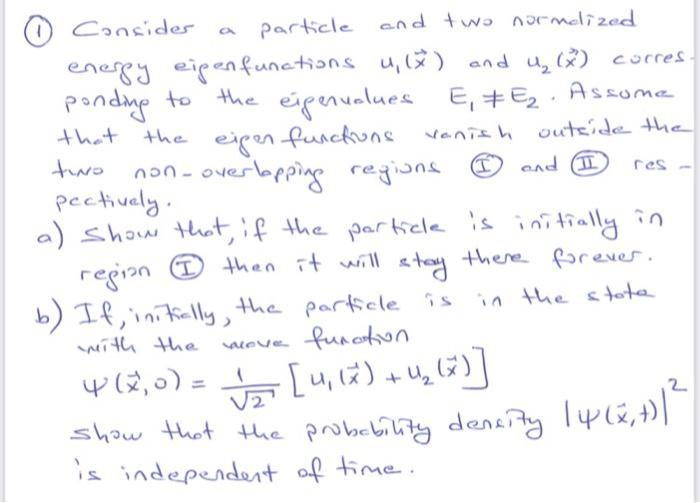 ① Consider a particle and two normalized
energy eigenfunctions u₁(x⃗) and u₂(x⃗) corres-
ponding to the eigenvalues E₁ ≠ E₂. Assume
that the eigen functions vanish outside the
two non-overlapping regions Ⓘ and Ⓘ︎Ⓘ res-
pectively.
a) Show that, if the particle is initially in
region Ⓘ then it will stay there forever.
b) If, initially, the particle is in the state
with the wave function
ψ(x⃗,0) = 1/√2 [u₁(x⃗) + u₂(x⃗)]
show that the probability density |ψ(x⃗,t)|²
is independent of time.